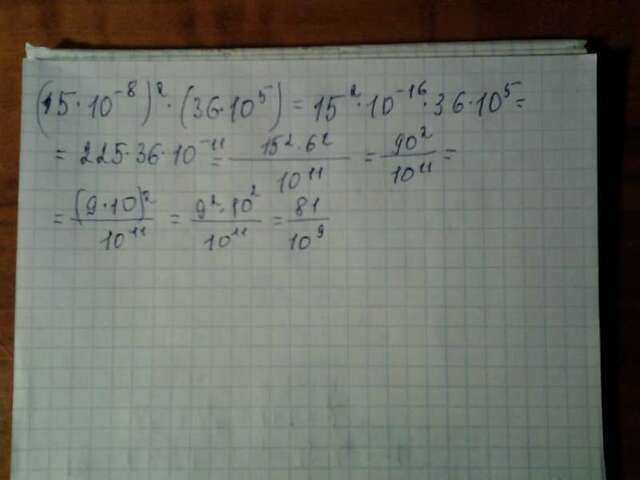 (15·10⁻⁸)²·(36·10⁵)=15²·10⁻¹⁶·36·10⁵=
=225·36·10⁻¹¹=15²·6²/10¹¹=90²/10¹¹=
=(9·10)²/10¹¹=9²·10²/10¹¹=81/10⁹